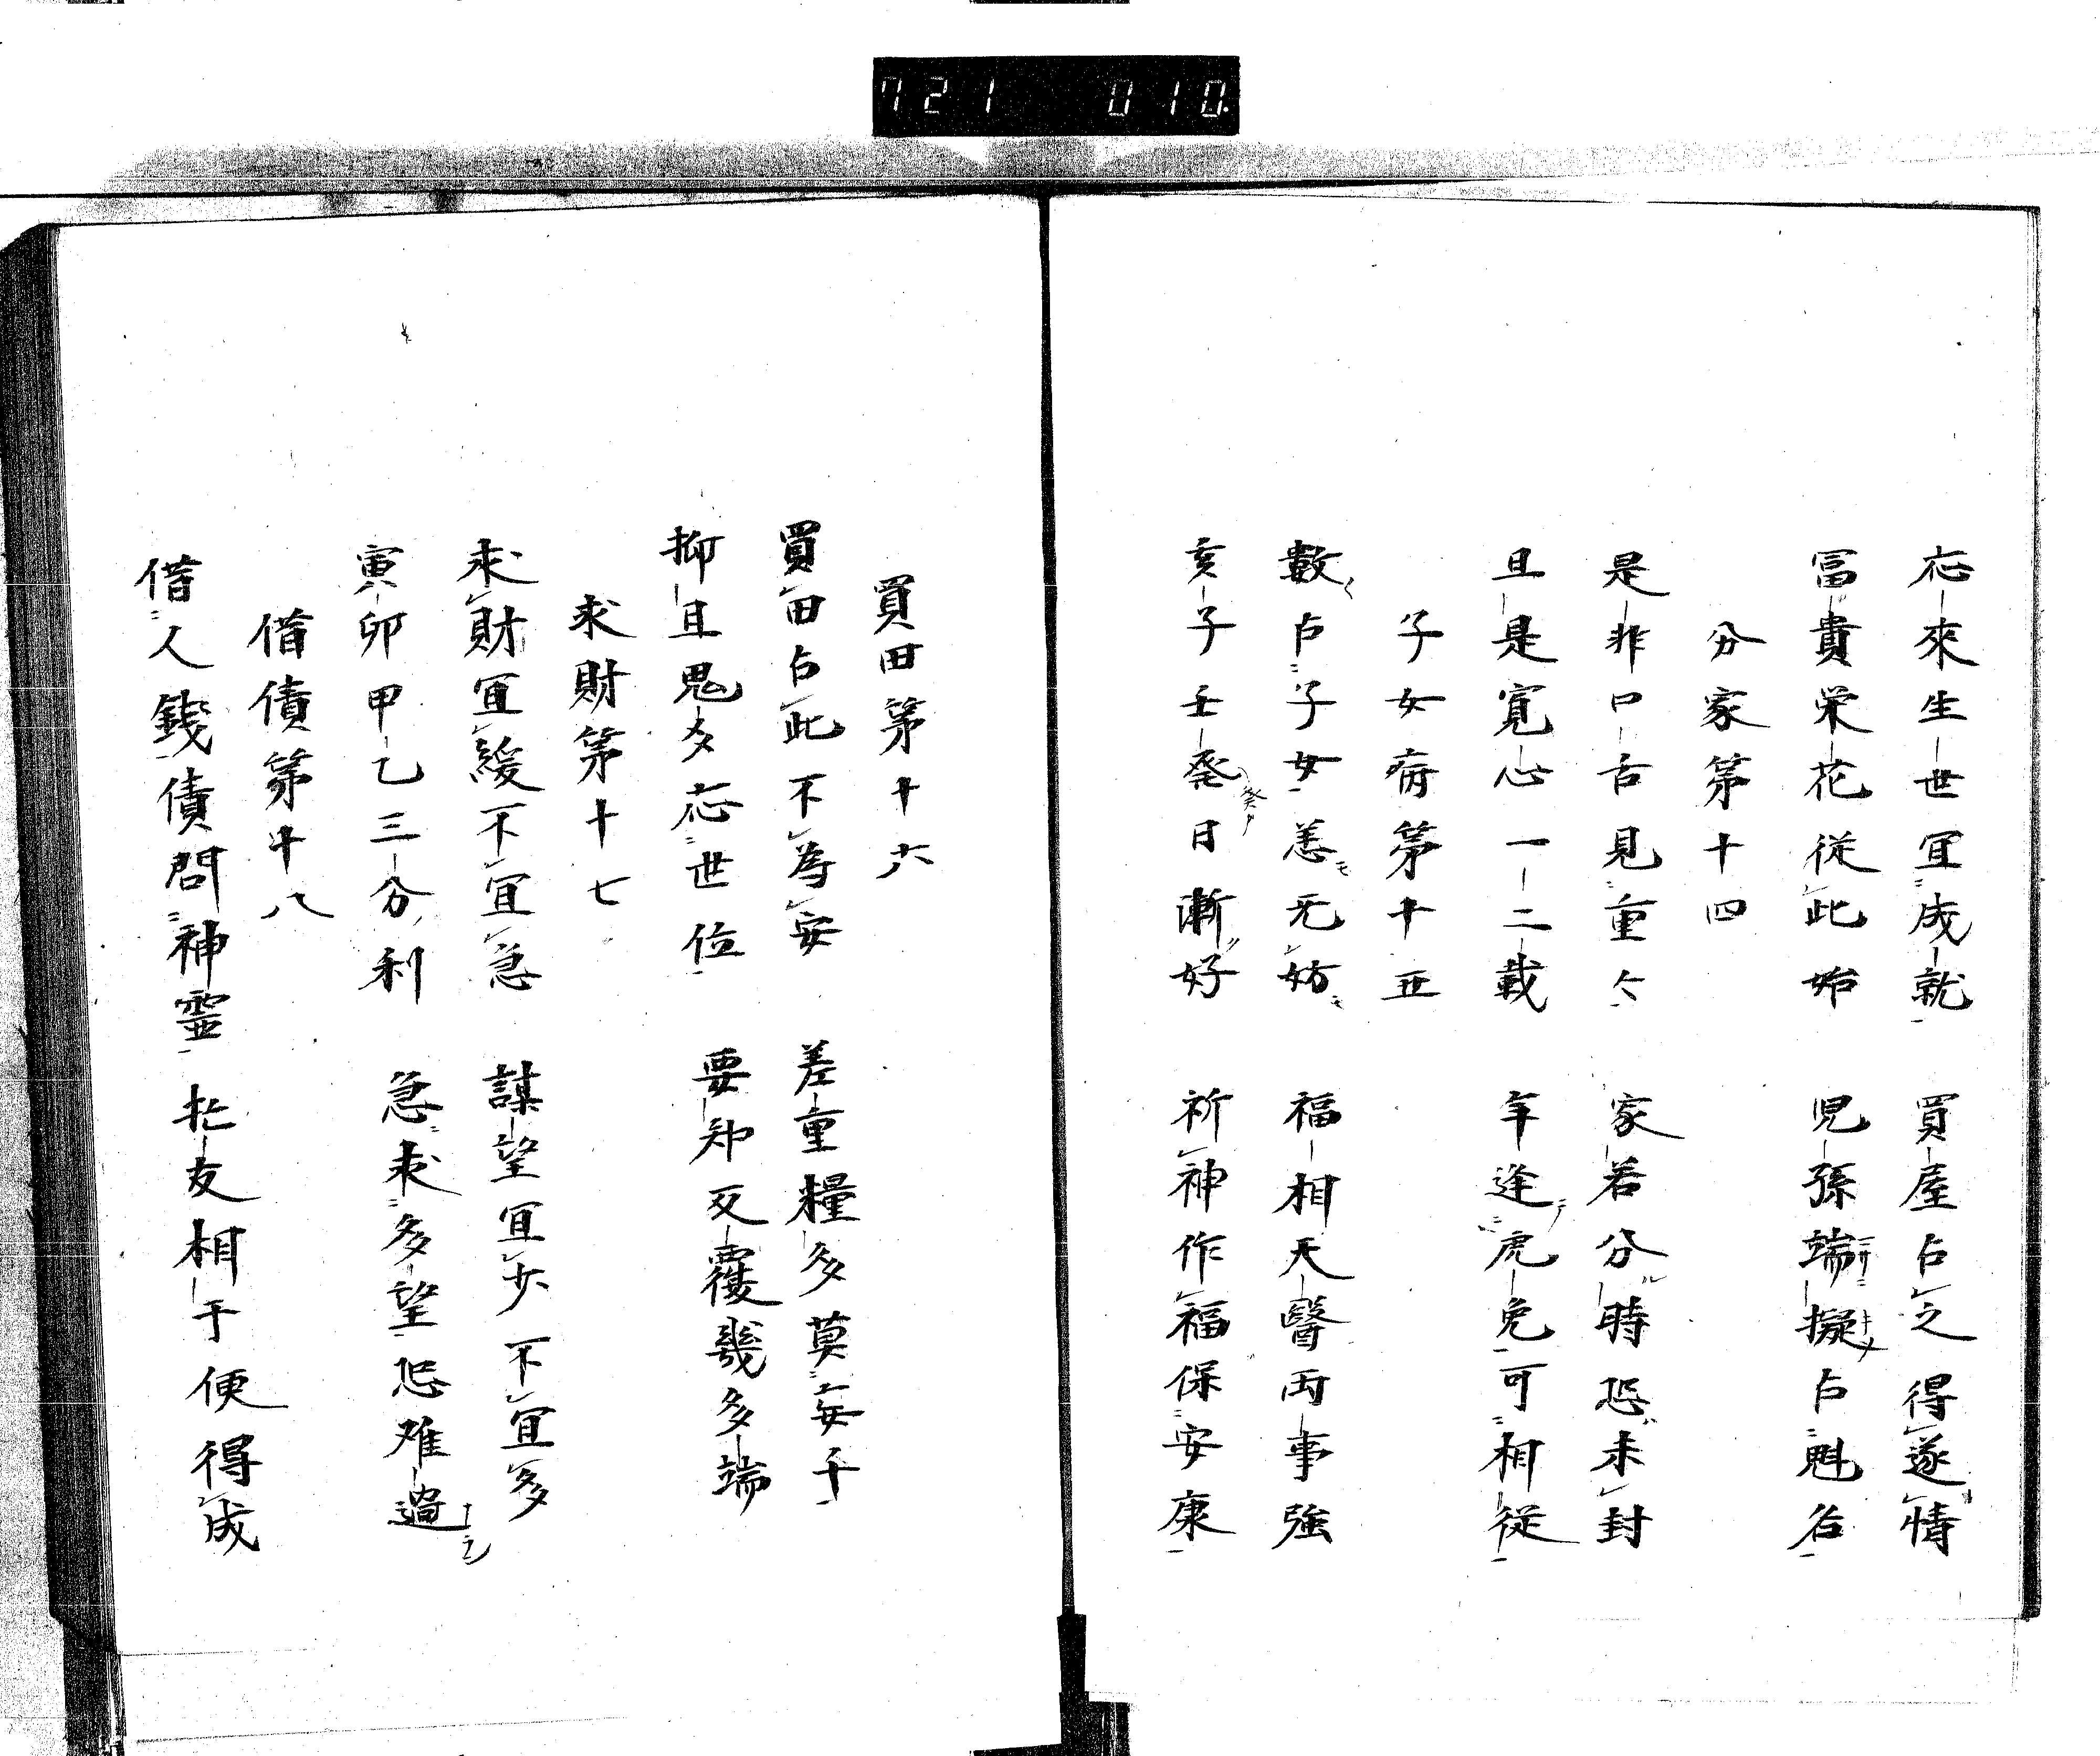 721 010
応來生世宜成就 買屋占之得遂情
冨貴栄花從此始 児孫端擬占魁名
分家第十四
是非口舌見重〻 家若分時恐未封
且是寛心一二載 年逢虎兔可相從
子女病第十五
數占子女恙无妨 福相天醫両事強
亥子壬癸日漸好 祈神作福保安康
買田第十六
買田占此不為安 差重糧多莫妄干
抑且鬼多応世位 要知反覆幾多端
求財第十七
求財宜緩不宜急 謀望宜少不宜多
寅卯甲乙三分利 急求多望恐难過
借債第十八
借人錢債問神霊 朋友相于便得成